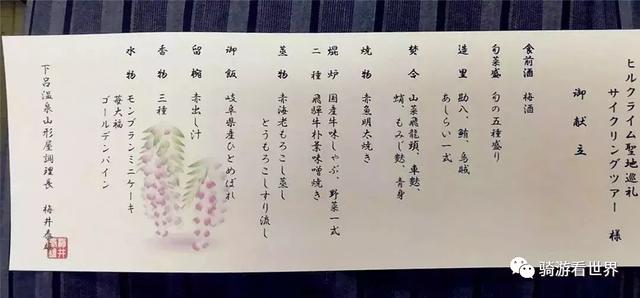 ヒルクライム聖地巡礼
サイクリングツアー 様
御献立
食前酒 梅酒
旬菜盛 旬の五種盛り
造里 勘八、鮪、烏賊
あしらい一式
焚合 山菜飛龍頭、車麩、
蛸、もみじ麩、青身
焼物 赤魚明太焼き
焜炉 国産牛味しゃぶ、野菜一式
二種 飛騨牛朴葉味噌焼き
蒸物 赤海老もろこし蒸し
とうもろこしすり流し
御飯 岐阜県産ひとめぼれ
留椀 赤出し汁
香物 三種
水物 モンブランミニケーキ
苺大福
ゴールデンパイン
下呂温泉山形屋調理長 梅井
骑游看世界